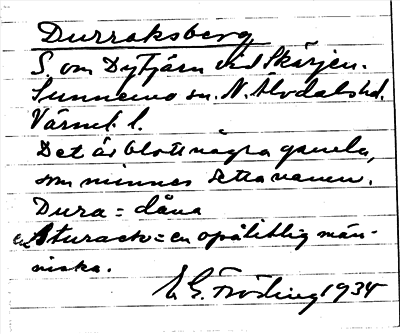 Durraksberg
S. om Dytjärn vid Skärjen.
Sunnemo sn. N. Älvdalshd.
Värml. l.
Det är blott några gamla,
som minnes detta namn.
Dura = dåna
Sturack = en opålitlig män-
niska.
E. G. Fröding 1934